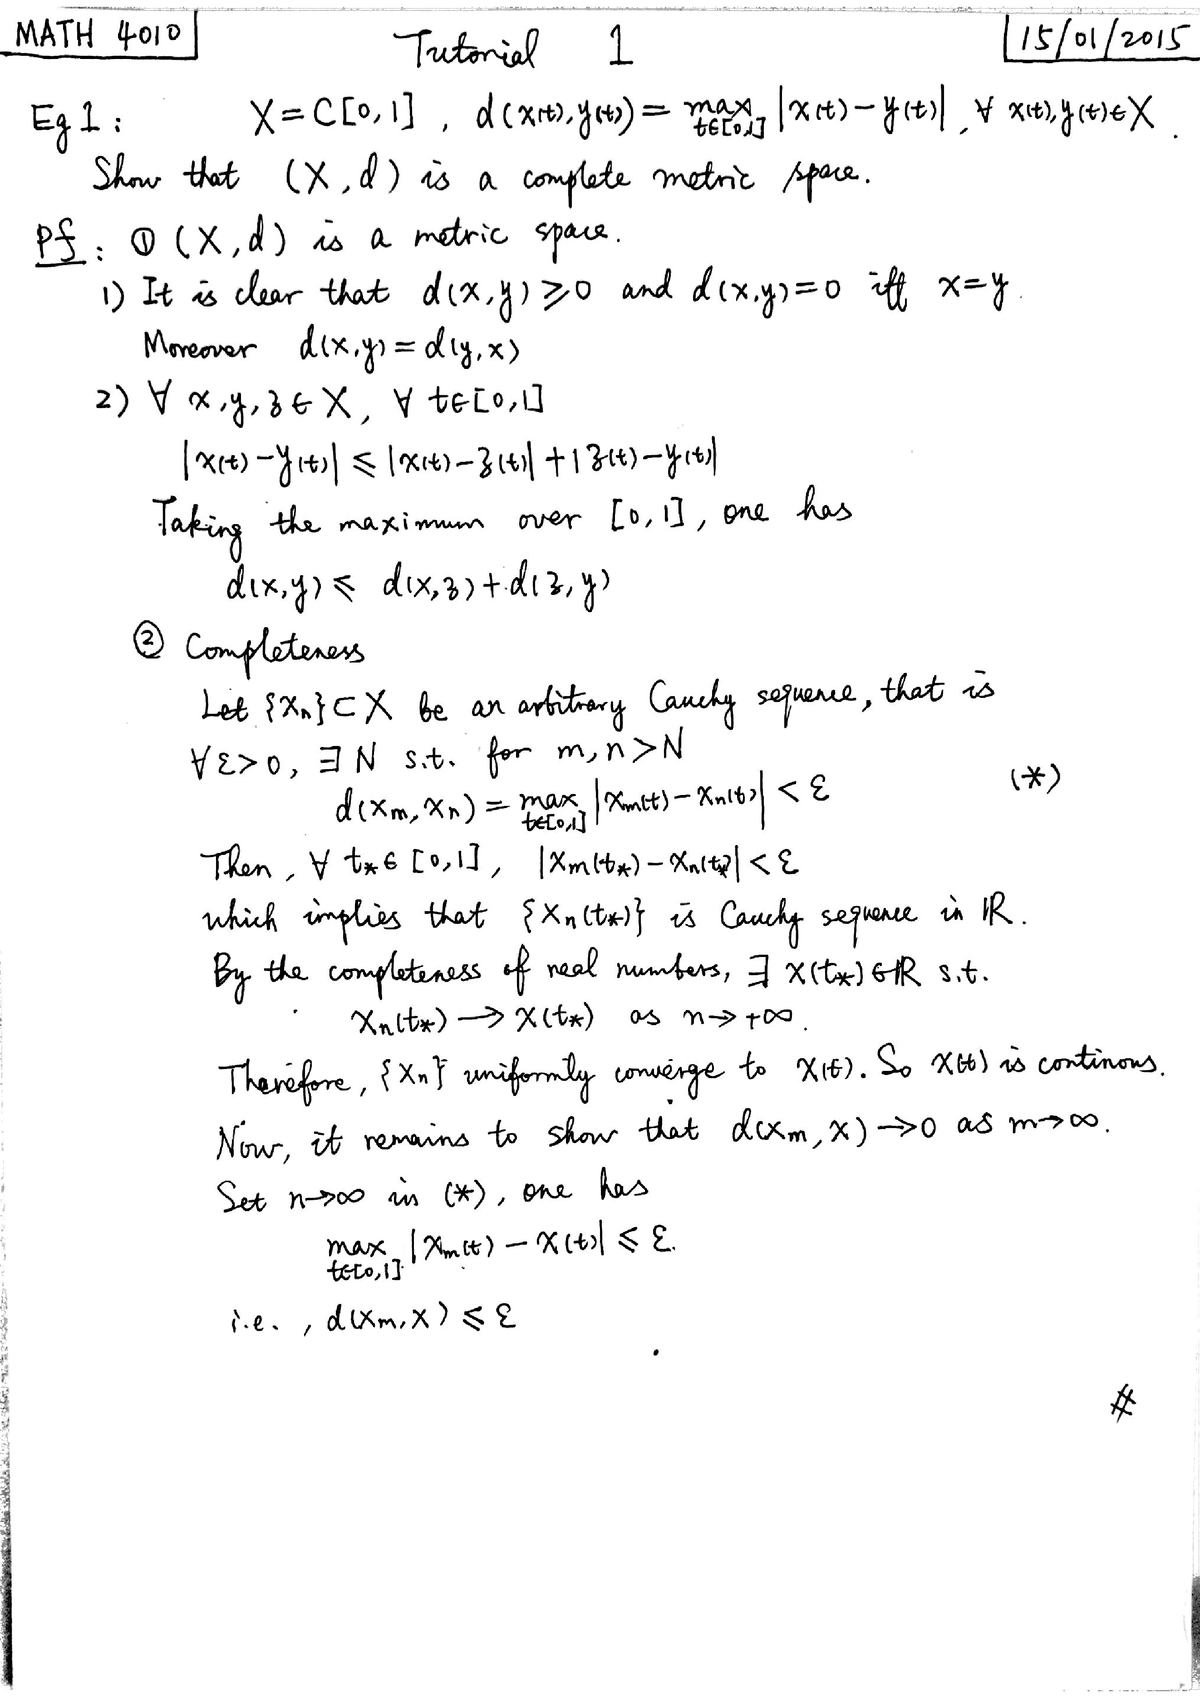 MATH 4010
Tutorial 1
15/01/2015
Eg 1: X = C[0,1], d(x(t), y(t)) = max_{t∈[0,1]} |x(t) − y(t)|, ∀ x(t), y(t) ∈ X.
Show that (X, d) is a complete metric space.
Pf: ① (X, d) is a metric space.
1) It is clear that d(x,y) ⩾ 0 and d(x,y) = 0 iff x = y.
Moreover d(x,y) = d(y,x)
2) ∀ x, y, z ∈ X, ∀ t ∈ [0,1]
|x(t) − y(t)| ⩽ |x(t) − z(t)| + |z(t) − y(t)|
Taking the maximum over [0,1], one has
d(x,y) ⩽ d(x,z) + d(z,y)
② Completeness
Let {Xn} ⊂ X be an arbitrary Cauchy sequence, that is
∀ ε > 0, ∃ N s.t. for m, n > N
d(Xm, Xn) = max_{t∈[0,1]} |Xm(t) − Xn(t)| < ε (*)
Then, ∀ t* ∈ [0,1], |Xm(t*) − Xn(t*)| < ε
which implies that {Xn(t*)} is Cauchy sequence in ℝ.
By the completeness of real numbers, ∃ X(t*) ∈ ℝ s.t.
Xn(t*) → X(t*) as n → +∞.
Therefore, {Xn} uniformly converge to X(t). So X(t) is continous.
Now, it remains to show that d(Xm, X) → 0 as m → ∞.
Set n → ∞ in (*), one has
max_{t∈[0,1]} |Xm(t) − X(t)| ⩽ ε.
i.e., d(Xm, X) ⩽ ε
#